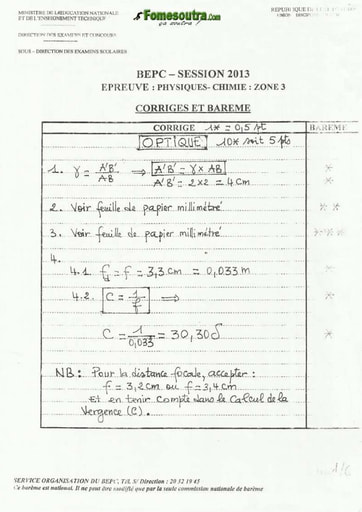 MINISTERE DE L'EDUCATION NATIONALE
ET DE L'ENSEIGNEMENT TECHNIQUE
Fomesoutra.com
ça soutra !
DIRECTION DES EXAMENS ET CONCOURS
SOUS - DIRECTION DES EXAMENS SCOLAIRES
BEPC – SESSION 2013
EPREUVE : PHYSIQUES- CHIMIE : ZONE 3
CORRIGES ET BAREME
CORRIGE 1* = 0,5 pt BAREME
OPTIQUE 10* soit 5 pts
1. γ = A'B'/AB ⇒ A'B' = γ × AB
A'B' = 2×2 = 4 cm *
2. Voir feuille de papier millimétré * *
3. Voir feuille de papier millimétré
4.
4.1 f = 3,3 cm = 0,033 m *
4.2. C = 1/f ⇒ *
C = 1/0,033 = 30,30 δ *
NB : Pour la distance focale, accepter :
f = 3,2 cm ou f = 3,4 cm
Et en tenir compte dans le calcul de la
Vergence (C).
SERVICE ORGANISATION DU BEPC, Tél. S/ Direction : 20 32 19 45
Ce barème est national. Il ne peut être modifié que par la seule commission nationale de barème